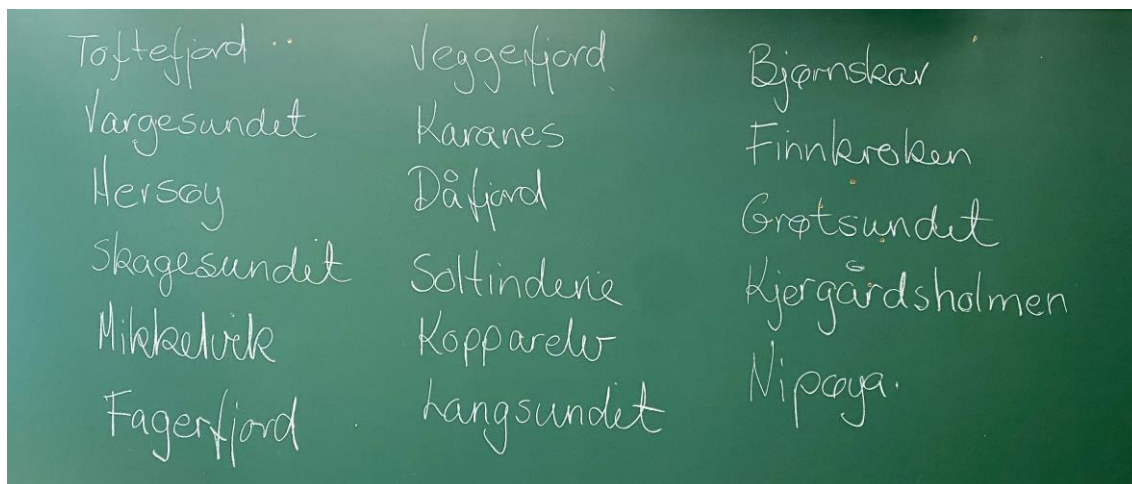 Toftefjord
Vargesundet
Hersøy
Skagesundet
Mikkelvik
Fagerfjord
Veggefjord
Karanes
Dåfjord
Soltindene
Kopparelv
Langsundet
Bjørnskar
Finnkroken
Grøtsundet
Kjergårdsholmen
Nipøya.